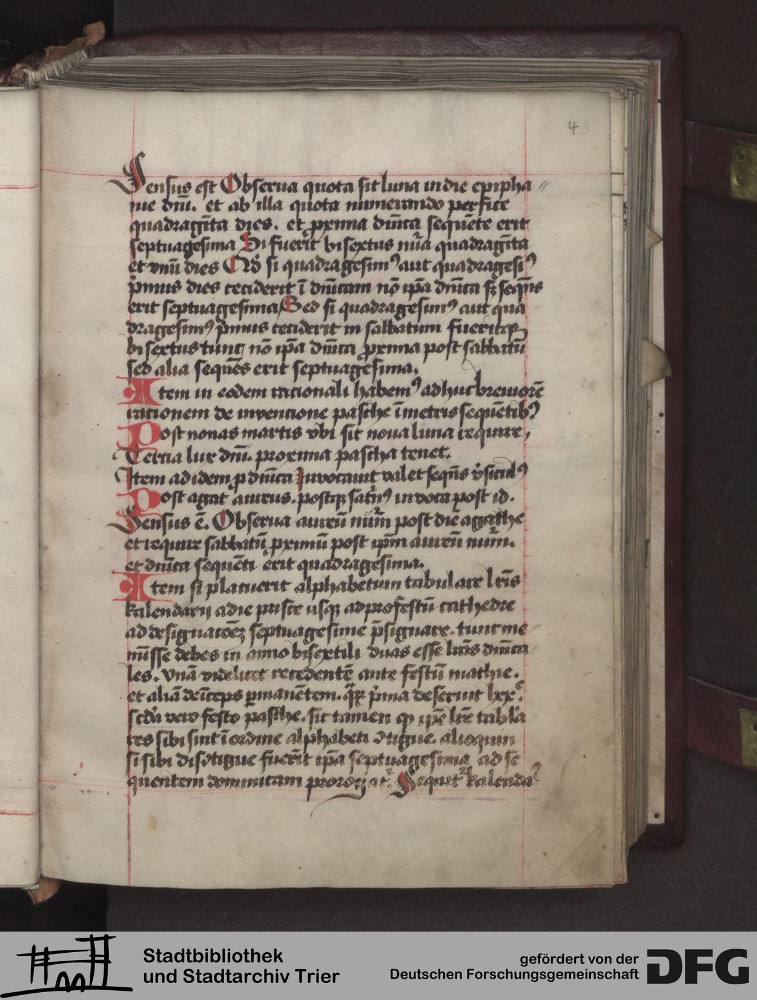 4
Sensus est Obserua quota sit luna in die epipha
nie dnī. et ab illa quota numerando perfice
quadragīta dies. et pxima dnīca sequēte erit
septuagesima Si fuerit bisextus nūa quadragīta
et vnū dies Qd si quadragesimꝯ aut quadragesiꝯ
pmus dies ceciderit ī dnīcam nō ipa dnīca sꝫ seqns
erit septuagesima Sed si quadragesimꝯ aut qua
dragesimꝯ pmus ceciderit in sabbatum fueritqꝫ
bisextus tunc nō ipa dnīca pxima post sabbatū
sed alia sequēs erit septuagesima.
Item in eodem racionali habemꝯ adhuc breuiorē
racionem de inuencione pasche ī metris sequētibꝯ
Post nonas martis vbi sit noua luna require,
Tercia lux dnī. proxima pascha tenet.
Item ad idem p dnīca Inuocauit valet seqns vsiculꝯ
Post agat aureus. postqꝫ satnꝯ inuoca post id.
Sensus ē. Obserua aureū nūm post die agathe
et require sabbatū pximū post ipm aureū nūm.
et dnīca sequēti erit quadragesima.
Item si placuerit alphabetum tabulare lris
kalendarij a die prisce usqꝫ ad profestū cathedre
ad designacōeꝫ septuagesime psignare. tunc me
mīsse debes in anno bisextili duas esse lras dnīca
les. vnā videlicet recedentē ante festū mathie.
et aliā deīceps pmanētem. qꝝ pma deseruit lxx.
scda vero festo pasche. sic tamen qꝫ ipe lre tabla
res sibi sint ī ordine alphabeti ꝯtigue. alioquin
si sibi disꝯtigue fuerit ipa septuagesima ad se
quentem dominicam prorogatᷣ. Sequitᷣ kalendaꝯ
Stadtbibliothek
und Stadtarchiv Trier
gefördert von der
Deutschen Forschungsgemeinschaft
DFG